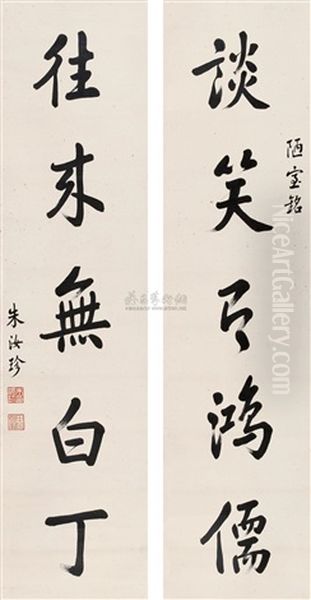 談笑有鴻儒
陋室銘
往來無白丁
朱汝珍
© NiceArtGallery.com